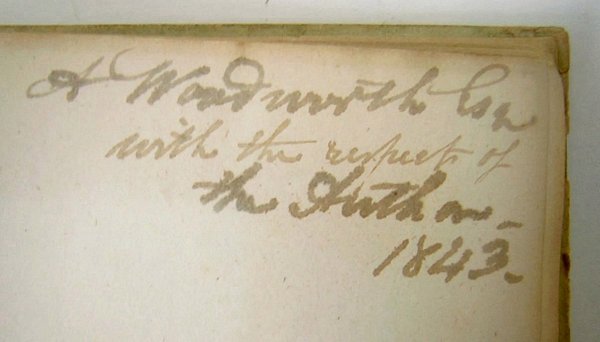 A Woodworth Esqr
with the respects of
the Author_
1843.